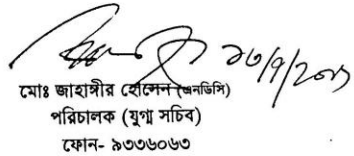 মোঃ জাহাঙ্গীর হোসেন (এনডিসি)
পরিচালক (যুগ্ম সচিব)
ফোন- ৯৩৩৬০৬৩